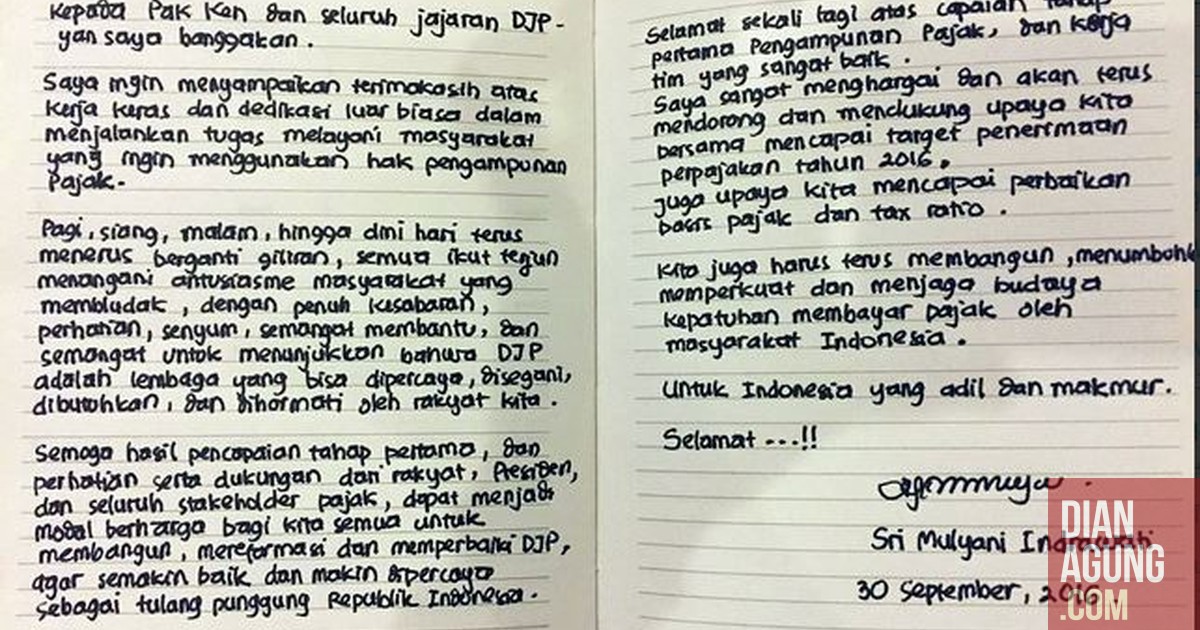 Kepada Pak Ken dan seluruh jajaran DJP -
yan saya banggakan.
Saya ingin menyampaikan terimakasih atas
kerja keras dan dedikasi luar biasa dalam
menjalankan tugas melayani masyarakat
yang ingin menggunakan hak pengampunan
Pajak.
Pagi, siang, malam, hingga dini hari terus
menerus berganti giliran, semua ikut tegun
menangani antusiasme masyarakat yang
membludak, dengan penuh kesabaran,
perhatian, senyum, semangat membantu, dan
semangat untuk menunjukkan bahwa DJP
adalah lembaga yang bisa dipercaya, disegani,
dibutuhkan, dan dihormati oleh rakyat kita.
Semoga hasil pencapaian tahap pertama, dan
perhatian serta dukungan dari rakyat, Presiden,
dan seluruh stakeholder pajak, dapat menjadi
modal berharga bagi kita semua untuk
membangun, mereformasi dan memperbaiki DJP,
agar semakin baik dan makin dipercaya
sebagai tulang punggung Republik Indonesia.
Selamat sekali lagi atas capaian tahap
pertama Pengampunan Pajak, dan kerja
tim yang sangat baik.
Saya sangat menghargai dan akan terus
mendorong dan mendukung upaya kita
bersama mencapai target penerimaan
perpajakan tahun 2016.
juga upaya kita mencapai perbaikan
basis pajak dan tax ratio.
Kita juga harus terus membangun, menumbuhk
memperkuat dan menjaga budaya
kepatuhan membayar pajak oleh
masyarakat Indonesia.
Untuk Indonesia yang adil dan makmur.
Selamat ---!!
Sri Mulyani Indrawati
30 September, 2016.
DIAN
AGUNG
.COM